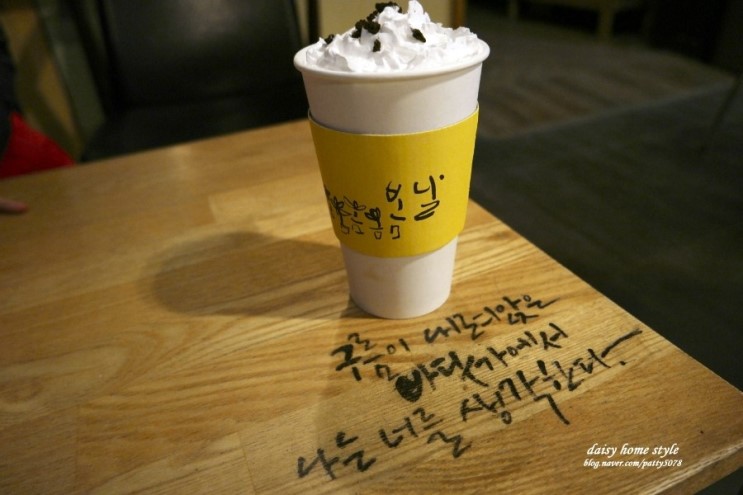 봄날
구름이 내려앉은
바닷가에서
나는 너를 생각한다
daisy home style
blog.naver.com/patty3078